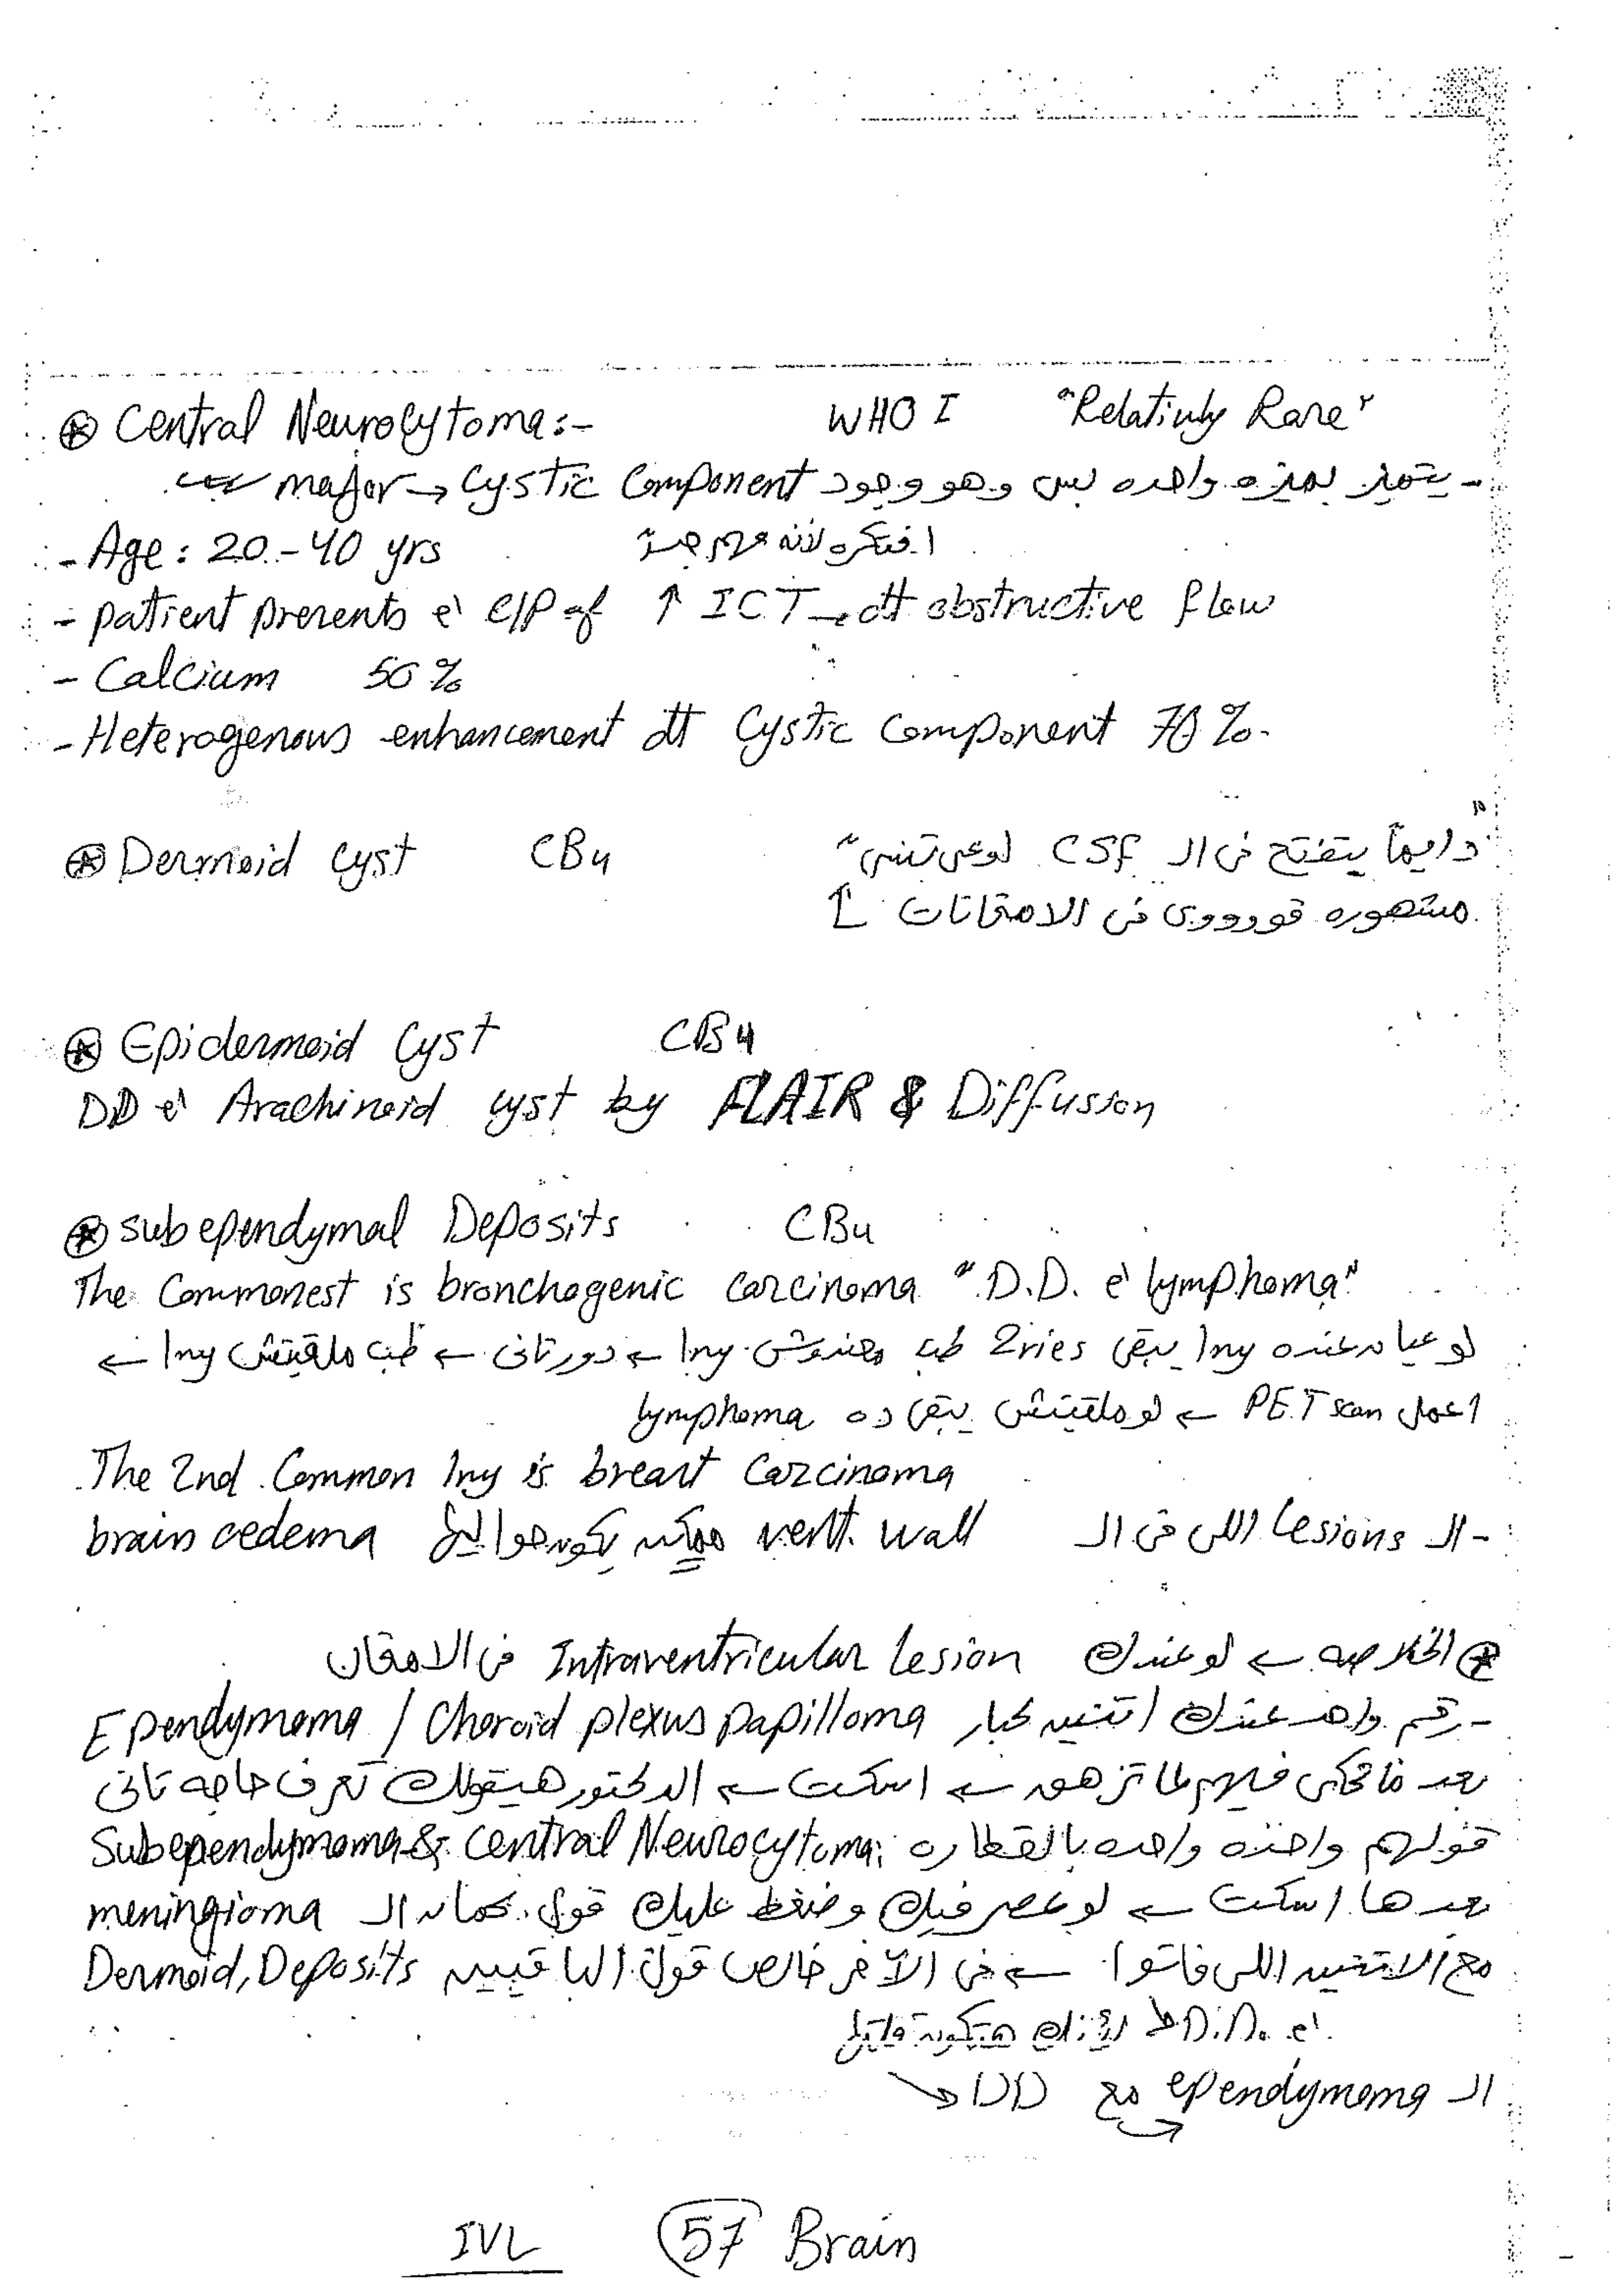 ⊛ Central Neurocytoma:- WHO I "Relativly Rare"
- يتميز بميزه واحده بس وهو وجود major → cystic component
- Age: 20-40 yrs افتكره لأنه مهم جداً
- patient presents è C/P of ↑ ICT → dt obstructive flow
- Calcium 50%
- Heterogenous enhancement dt cystic component 70%.
⊛ Dermoid cyst CB4 "دايماً يتفتح فى ال CSF اوعى تنسى"
مشهوره قوووووى فى الامتحانات ↑
⊛ Epidermoid cyst CB4
DD è Arachinoid cyst by FLAIR & Diffusion
⊛ subependymal Deposits CB4
The Commonest is bronchogenic carcinoma "D.D. è lymphoma"
لو عيان عنده 1ny يبقى 2ries طب معندوش 1ny ← دور تانى ← طب ملقتش 1ny ←
اعمل PET scan ← لو ملقتش يبقى ده lymphoma
The 2nd Common 1ny is breast carcinoma
- ال lesions اللى فى ال vent. wall ممكن يكون حواليها brain oedema
⊛ الخلاصه ← لو عندك Intraventricular lesion فى الامتحان
- رقم واحد عندك اتنين كبار Ependymoma / Choroid plexus papilloma
بعد ما تحكى فيهم لما تزهق ← اسكت ← الدكتور هيقولك تعرف حاجه تانى
قولهم واحده واحده بالقطاره Subependymoma & Central Neurocytoma;
بعدها اسكت ← لو عصر فيك وضغط عليك قول كمان ال meningioma
مع الاتنين اللى فاتوا ← فى الآخر خالص قول الباقيين Dermoid, Deposits
è D.D. لأنك هتكون قايل
ال ependymoma مع DD
IVL 57 Brain